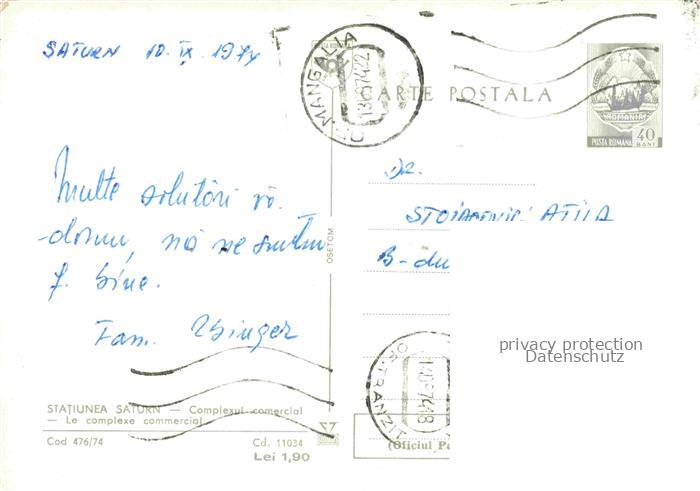 SATURN 10.IX.1974
POSTA ROMANA
OF. MANGALIA
13.09.74.22
CARTE POSTALA
ROMANIA
POSTA ROMANA 40 BANI
Dr.
ATILA
B-du
Multe salutări vă
dorim, noi ne simțim
f. bine.
Fam.
OSETOM
OF. TRANZIT
privacy protection
Datenschutz
STAȚIUNEA SATURN — Complexul comercial
— Le complexe commercial
Cod 476/74 Cd. 11034
Lei 1,90
(Oficiul Po